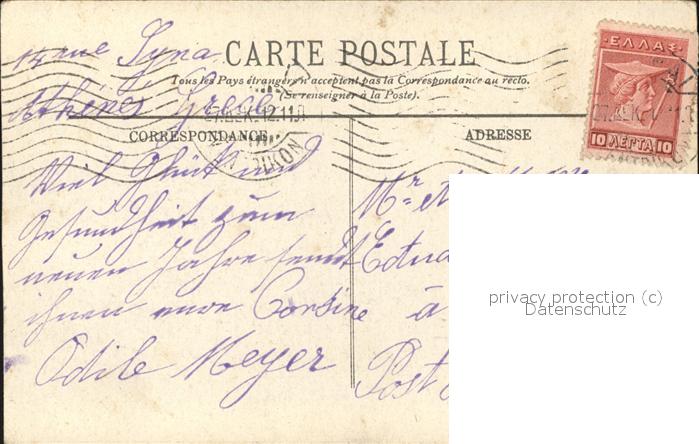 14 rue Syna
Athènes Grece
CARTE POSTALE
Tous les Pays étrangers n'acceptent pas la Correspondance au recto.
(Se renseigner à la Poste).
ΕΛΛΑΣ
10 ΛΕΠΤΑ 10
CORRESPONDANCE
ADRESSE
Viel Glück und
Gesundheit zum
neuen Jahre sendt
ihnen eure Corsine
Odile Meyer
Mr
Edua
à
Post
privacy protection (c)
Datenschutz